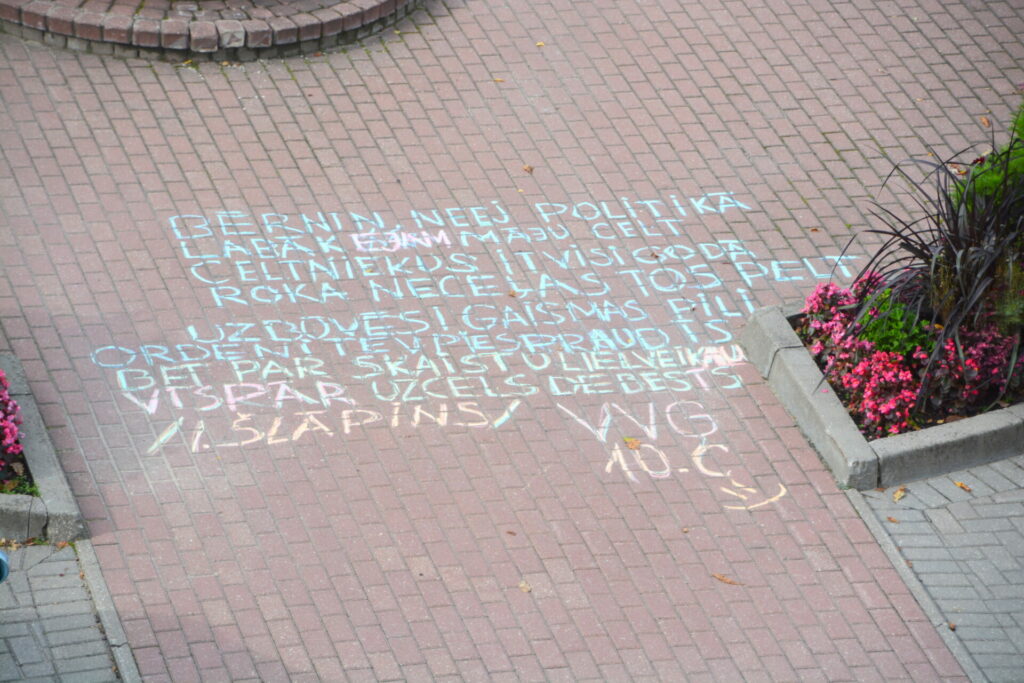 BERNIN, NEEJ POLITIKĀ
LABĀK MĀJU CELT
CELTNIEKUS IT VISI GODĀ
ROKA NECEĻAS TOS PELT
UZBŪVĒSI GAISMAS PILI
ORDENI TEV PIESPRAUDĪS
BET PAR SKAISTU LIELVEIKALU
VISPĀR UZCELS DEBESĪS
/I. ŠLĀPINS/ VVG
10.C